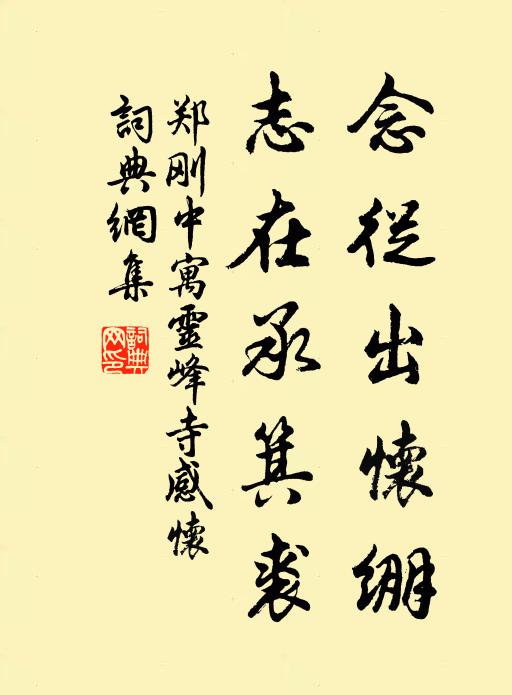 念從出懷繃
志在承箕裘
郑刚中寓靈峰寺感懷
詞典網集
詞典网印